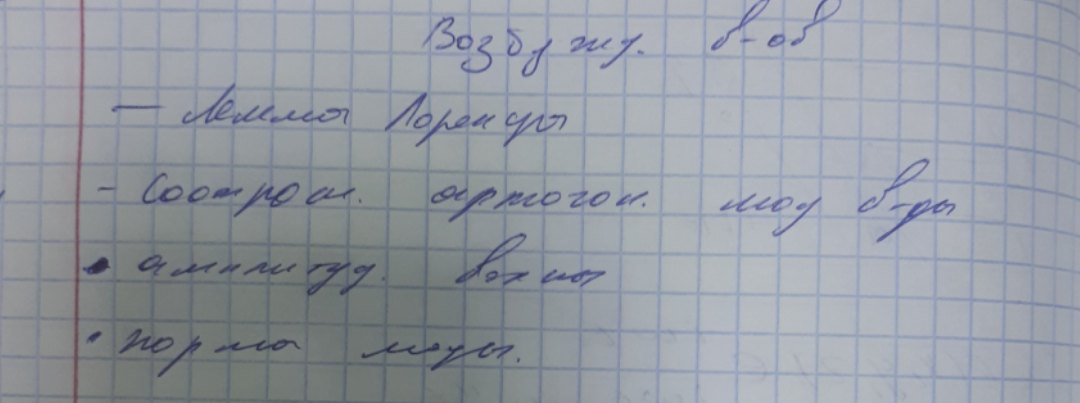 Возбужд. в-ов
— Леммы Лоренца
- Соотнош. ортогон. мод в-ды
• амплитуд. волны
• норма моды.